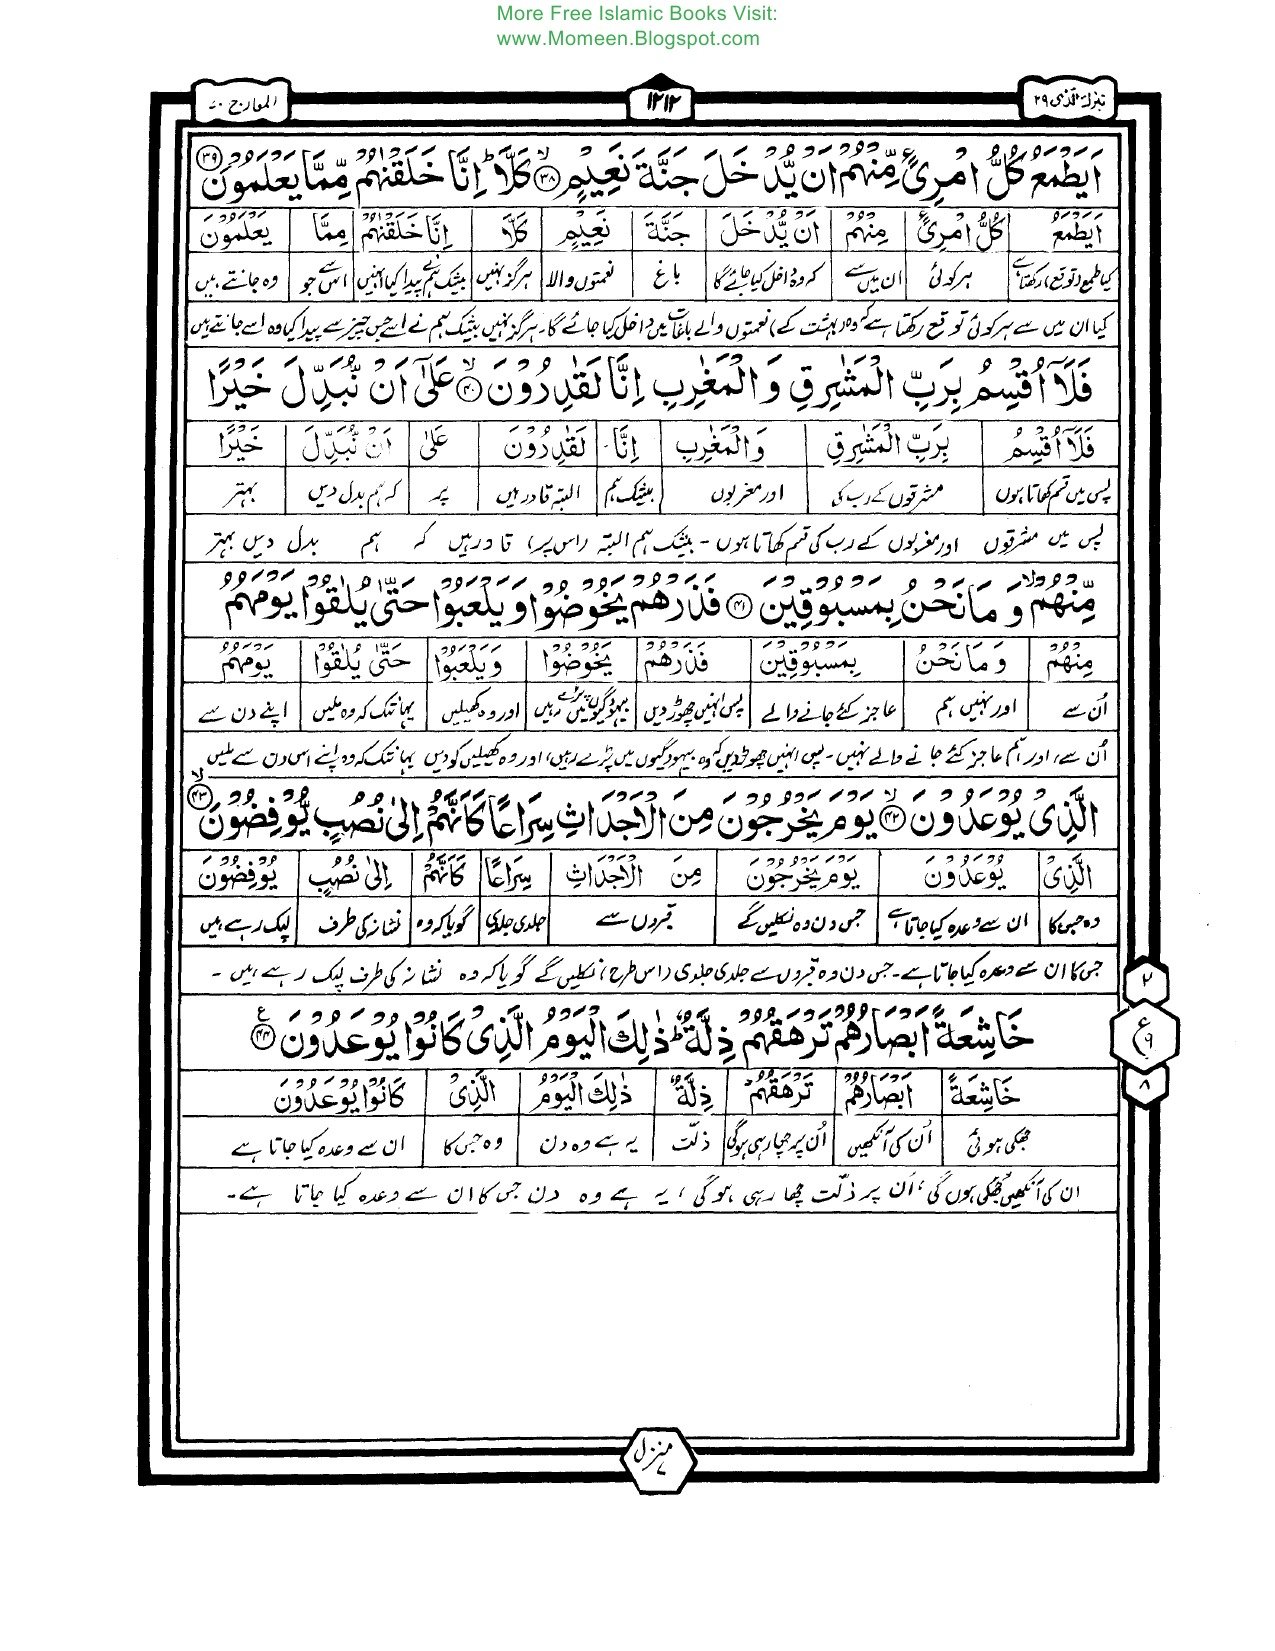 More Free Islamic Books Visit:
www.Momeen.Blogspot.com
تبٰرک الذی ۲۹
۱۲۱۲
المعارج ۷۰
اَیَطْمَعُ كُلُّ امْرِئٍ مِّنْهُمْ اَنْ یُّدْخَلَ جَنَّةَ نَعِیْمٍ ۳۸ كَلَّا ؕ اِنَّا خَلَقْنٰهُمْ مِّمَّا یَعْلَمُوْنَ ۳۹
اَیَطْمَعُ كُلُّ امْرِئٍ مِنْهُمْ اَنْ یُّدْخَلَ جَنَّةَ نَعِیْمٍ كَلَّا اِنَّا خَلَقْنٰهُمْ مِمَّا یَعْلَمُوْنَ
کیا طمع (توقع) رکھتا ہے ہر کوئی ان میں سے کہ وہ داخل کیا جائے گا باغ نعمتوں والا ہرگز نہیں بیشک ہم نے پیدا کیا انہیں اس سے جو وہ جانتے ہیں
کیا ان میں سے ہر کوئی توقع رکھتا ہے کہ وہ (بہشت کے) نعمتوں والے باغات میں داخل کیا جائے گا۔ ہرگز نہیں بیشک ہم نے اسے جس چیز سے پیدا کیا وہ اسے جانتے ہیں
فَلَاۤ اُقْسِمُ بِرَبِّ الْمَشٰرِقِ وَ الْمَغٰرِبِ اِنَّا لَقٰدِرُوْنَ ۴۰ عَلٰۤی اَنْ نُّبَدِّلَ خَیْرًا
فَلَاۤ اُقْسِمُ بِرَبِّ الْمَشٰرِقِ وَالْمَغٰرِبِ اِنَّا لَقٰدِرُوْنَ عَلٰی اَنْ نُّبَدِّلَ خَیْرًا
پس میں قسم کھاتا ہوں مشرقوں کے رب کی اور مغربوں بیشک ہم البتہ قادر ہیں پر کہ ہم بدل دیں بہتر
پس میں مشرقوں اور مغربوں کے رب کی قسم کھاتا ہوں - بیشک ہم البتہ (اس پر) قادر ہیں کہ ہم بدل دیں بہتر
مِّنْهُمْ ۙ وَ مَا نَحْنُ بِمَسْبُوْقِیْنَ ۴۱ فَذَرْهُمْ یَخُوْضُوْا وَ یَلْعَبُوْا حَتّٰی یُلٰقُوْا یَوْمَهُمُ
مِنْهُمْ وَ مَا نَحْنُ بِمَسْبُوْقِیْنَ فَذَرْهُمْ یَخُوْضُوْا وَیَلْعَبُوْا حَتّٰی یُلٰقُوْا یَوْمَهُمُ
اُن سے اور نہیں ہم عاجز کئے جانے والے پس انہیں چھوڑ دیں بیہودگیوں میں پڑے رہیں اور وہ کھیلیں یہانتک کہ وہ ملیں اپنے دن سے
اُن سے، اور ہم عاجز کئے جانے والے نہیں - پس انہیں چھوڑ دیں کہ وہ بیہودگیوں میں پڑے رہیں، اور وہ کھیلیں کودیں یہانتک کہ وہ اپنے اس دن سے ملیں
الَّذِیْ یُوْعَدُوْنَ ۴۲ یَوْمَ یَخْرُجُوْنَ مِنَ الْاَجْدَاثِ سِرَاعًا كَاَنَّهُمْ اِلٰی نُصُبٍ یُّوْفِضُوْنَ ۴۳
الَّذِیْ یُوْعَدُوْنَ یَوْمَ یَخْرُجُوْنَ مِنَ الْاَجْدَاثِ سِرَاعًا كَاَنَّهُمْ اِلٰی نُصُبٍ یُوْفِضُوْنَ
وہ جس کا ان سے وعدہ کیا جاتا ہے جس دن وہ نکلیں گے قبروں سے جلدی جلدی گویا کہ وہ نشانہ کی طرف لپک رہے ہیں
جس کا ان سے وعدہ کیا جاتا ہے - جس دن وہ قبروں سے جلدی جلدی (اس طرح) نکلیں گے گویا کہ وہ نشانہ کی طرف لپک رہے ہیں -
خَاشِعَةً اَبْصَارُهُمْ تَرْهَقُهُمْ ذِلَّةٌ ؕ ذٰلِكَ الْیَوْمُ الَّذِیْ كَانُوْا یُوْعَدُوْنَ ۴۴ ع
خَاشِعَةً اَبْصَارُهُمْ تَرْهَقُهُمْ ذِلَّةٌ ذٰلِكَ الْیَوْمُ الَّذِیْ كَانُوْا یُوْعَدُوْنَ
جھکی ہوئی اُن کی آنکھیں اُن پر چھا رہی ہوگی ذلّت یہ ہے وہ دن وہ جس کا ان سے وعدہ کیا جاتا ہے
ان کی آنکھیں جھکی ہوں گی، اُن پر ذلّت چھا رہی ہوگی، یہ ہے وہ دن جس کا ان سے وعدہ کیا جاتا ہے -
۲
ع ۹
۸
منزل ۷